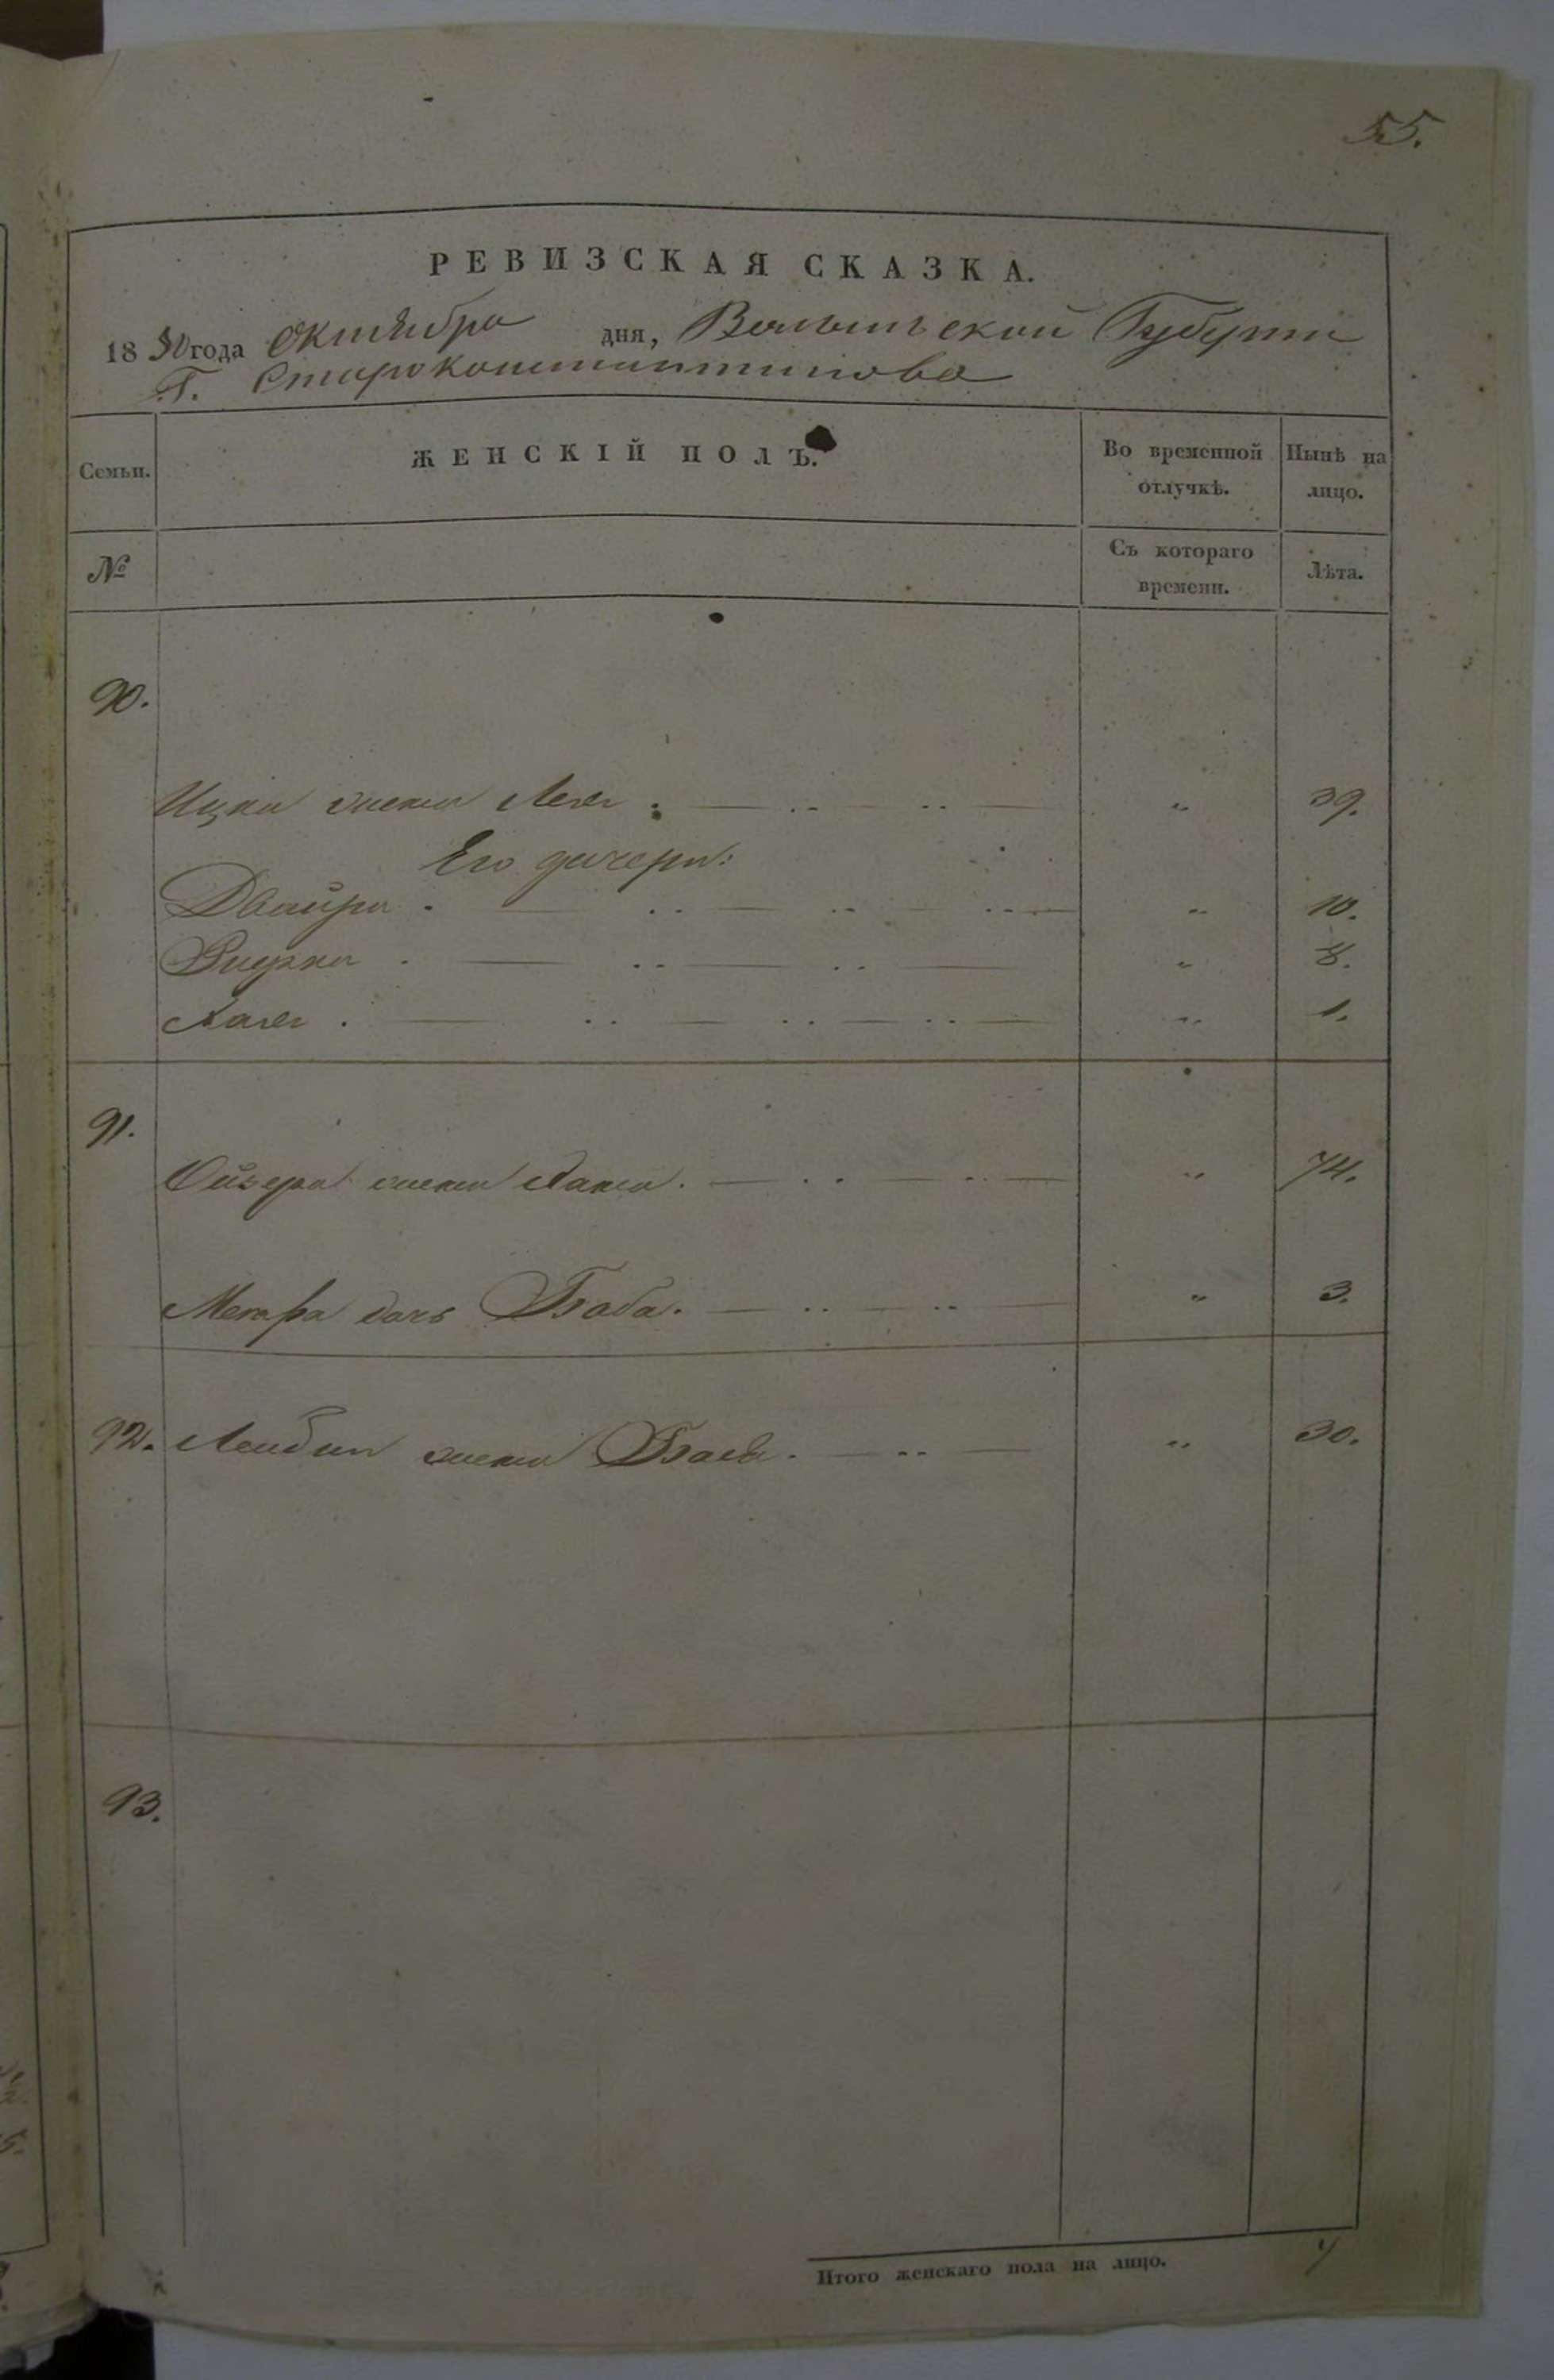 55.
РЕВИЗСКАЯ СКАЗКА.
1850 года Октября дня, Волынской Губерни
Г. Староконстантинова
Семьи.
ЖЕНСКІЙ ПОЛЪ.
Во временной отлучкѣ.
Нынѣ на лицо.
№
Съ котораго времени.
Лѣта.
90.
Ицка жена Лея . „ 39.
Его дочери:
Двойра . „ 10.
„ 8.
Хая . „ 1.
91.
Ойзера жена „ 74.
дочь Баба. „ 3.
92. Лейбы жена Бася. „ 30.
93.
Итого женскаго пола на лицо. 7